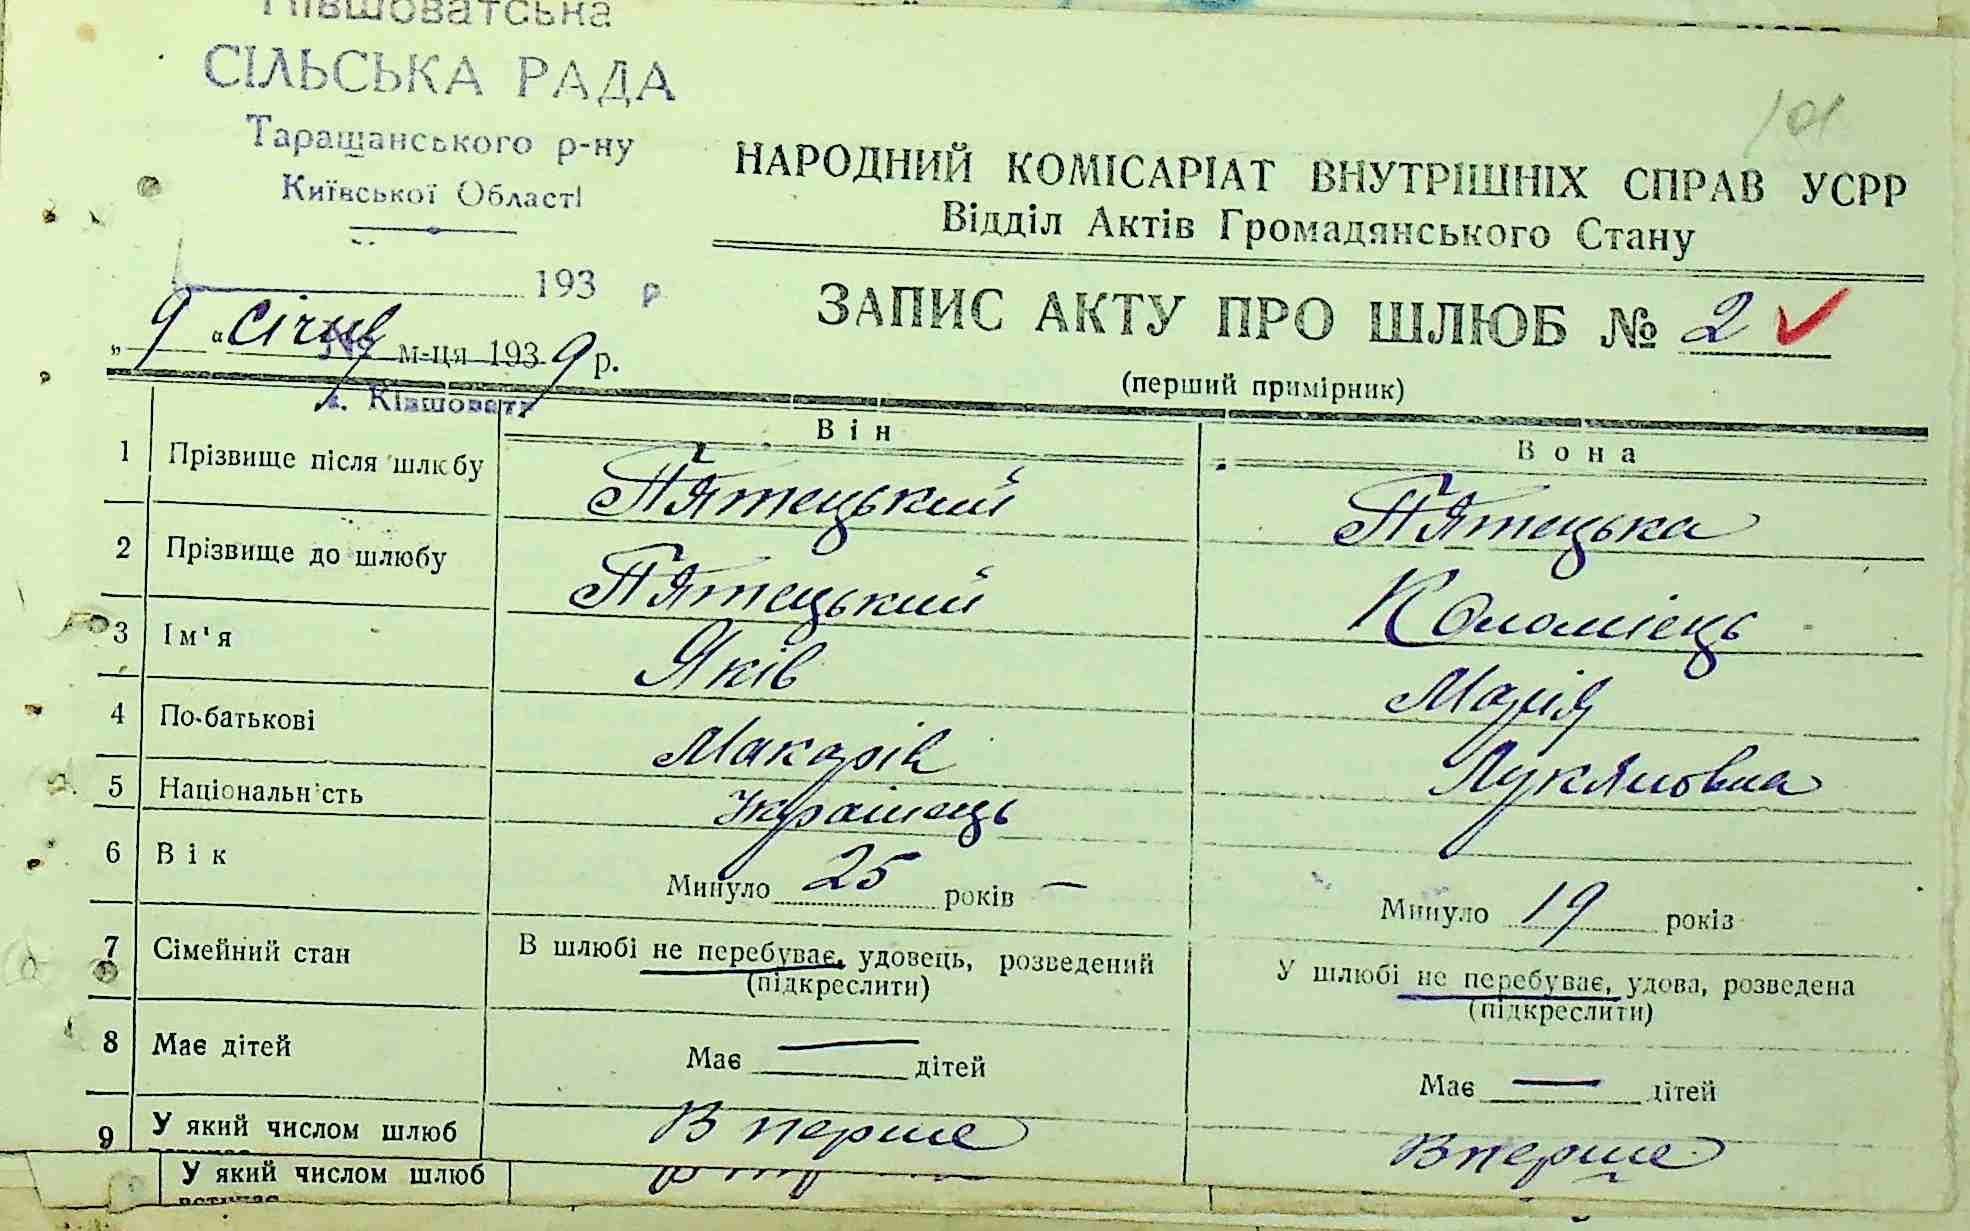 Ківшоватська
СІЛЬСЬКА РАДА
Таращанського р-ну
Київської Області
193 р
101
НАРОДНИЙ КОМІСАРІАТ ВНУТРІШНІХ СПРАВ УСРР
Відділ Актів Громадянського Стану
ЗАПИС АКТУ ПРО ШЛЮБ № 2
(перший примірник)
„ 9 “ січня м-ця 1939 р.
с. Ківшовата
Він Вона
1 Прізвище після шлюбу Пятецький Пятецька
2 Прізвище до шлюбу Пятецький Коломіець
3 Ім'я Яків Марія
4 По-батькові Макарів Лукяновна
5 Національність Украінець
6 Вік Минуло 25 років — Минуло 19 років
7 Сімейний стан В шлюбі не перебуває, удовець, розведений У шлюбі не перебуває, удова, розведена
(підкреслити) (підкреслити)
8 Має дітей Має — дітей Має — дітей
9 У який числом шлюб В перше Вперше
У який числом шлюб
вступає